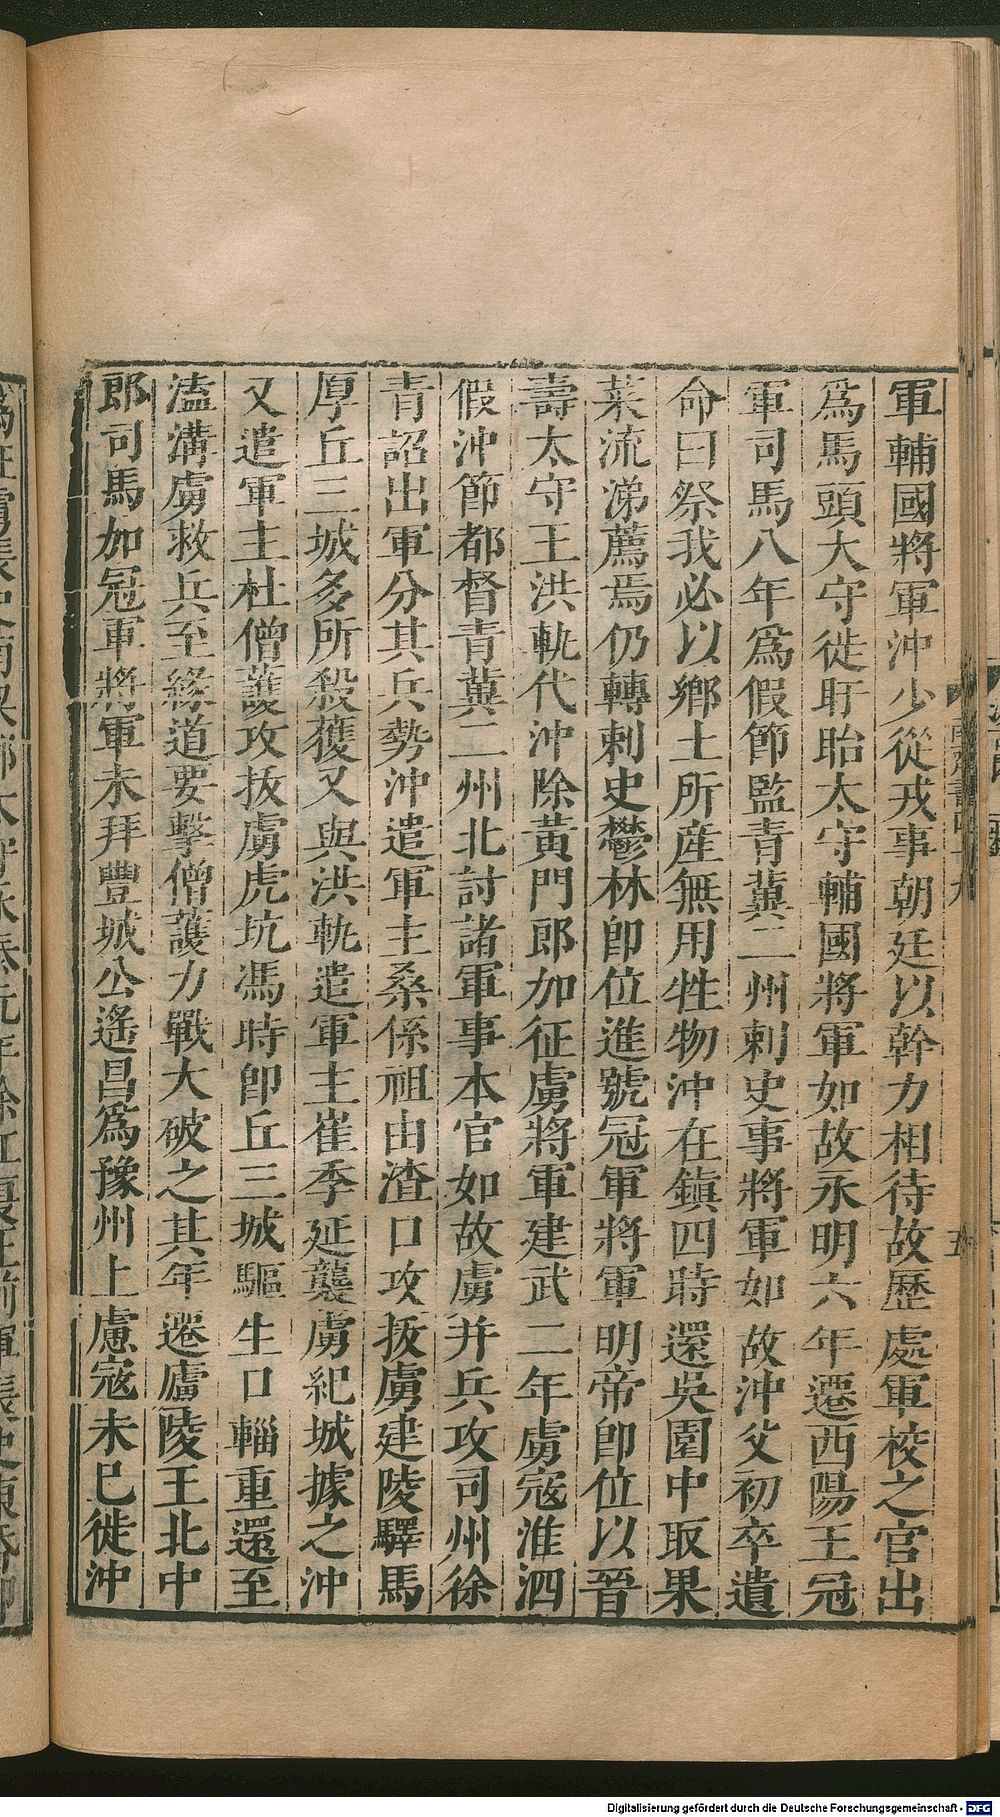 軍輔國將軍沖少從戎事朝廷以幹力相待故歷處軍校之官出
爲馬頭大守徙盱眙太守輔國將軍如故永明六年遷西陽王冠
軍司馬八年爲假節監青冀二州刺史事將軍如故沖父初卒遺
命曰祭我必以鄉土所産無用牲物沖在鎮四時還吳園中取果
菜流涕薦焉仍轉刺史鬱林卽位進號冠軍將軍明帝卽位以晉
壽太守王洪軌代沖除黃門郎加征虜將軍建武二年虜寇淮泗
假沖節都督青冀二州北討諸軍事本官如故虜并兵攻司州徐
青詔出軍分其兵勢沖遣軍主桑係祖由渣口攻拔虜建陵驛馬
厚丘三城多所殺獲又與洪軌遣軍主崔季延襲虜紀城據之沖
又遣軍主杜僧護攻拔虜虎坑馮時卽丘三城驅生口輜重還至
溘溝虜救兵至緣道要擊僧護力戰大破之其年遷廬陵王北中
郎司馬加冠軍將軍未拜豐城公遙昌爲豫州上慮寇未已徙沖
南齊書四十九
五
Digitalisierung gefördert durch die Deutsche Forschungsgemeinschaft - DFG